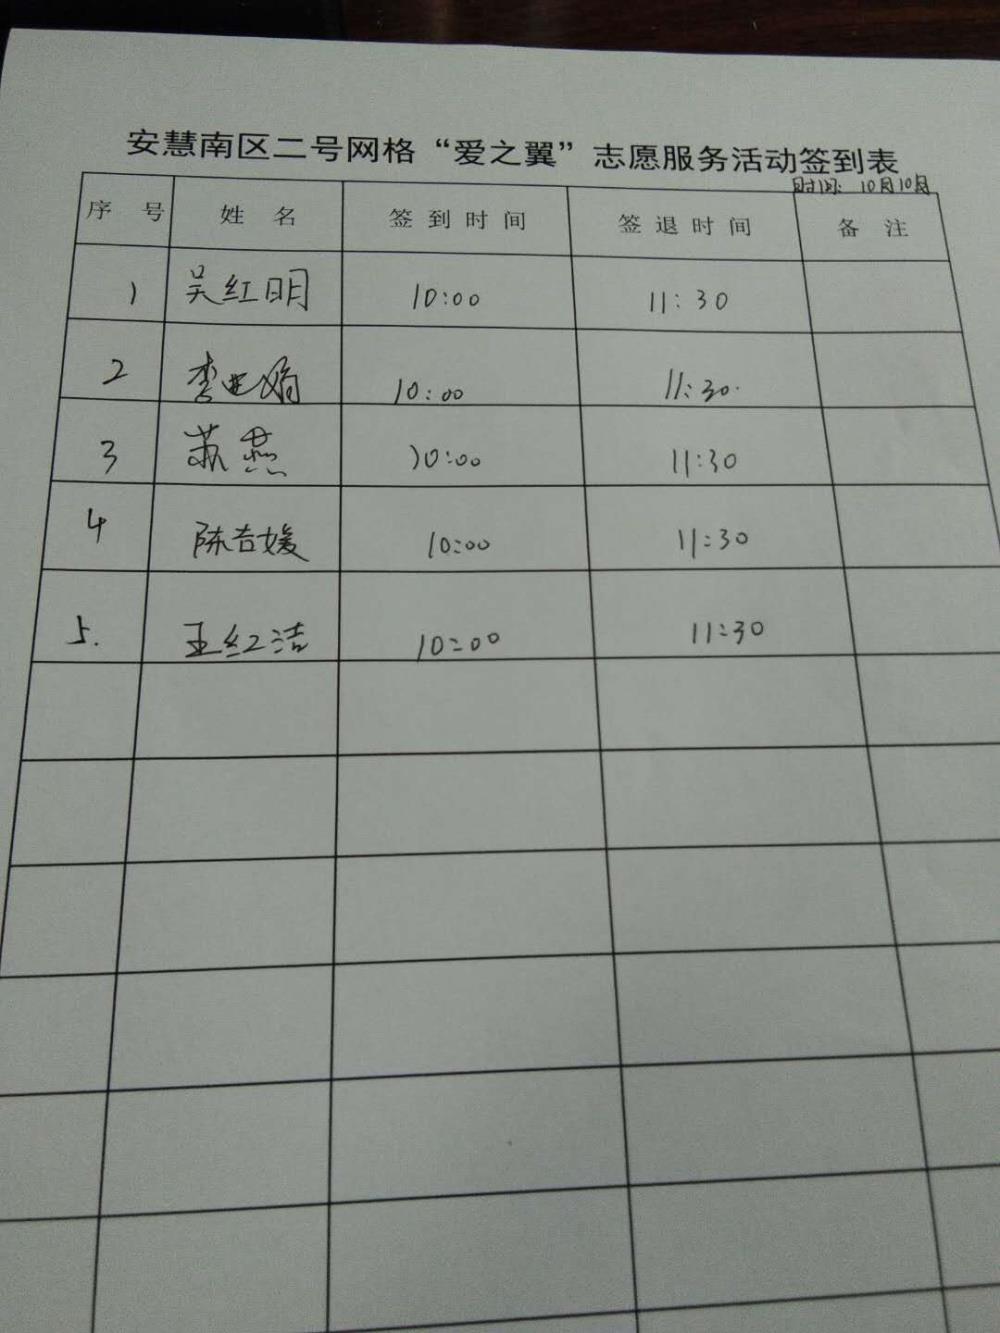 安慧南区二号网格“爱之翼”志愿服务活动签到表
时间：10月10日
序 号 姓 名 签 到 时 间 签 退 时 间 备 注
1 吴红明 10:00 11:30
2 李亚娟 10:00 11:30.
3 苏燕 10:00 11:30
4 陈吉媛 10:00 11:30
5. 王红洁 10:00 11:30